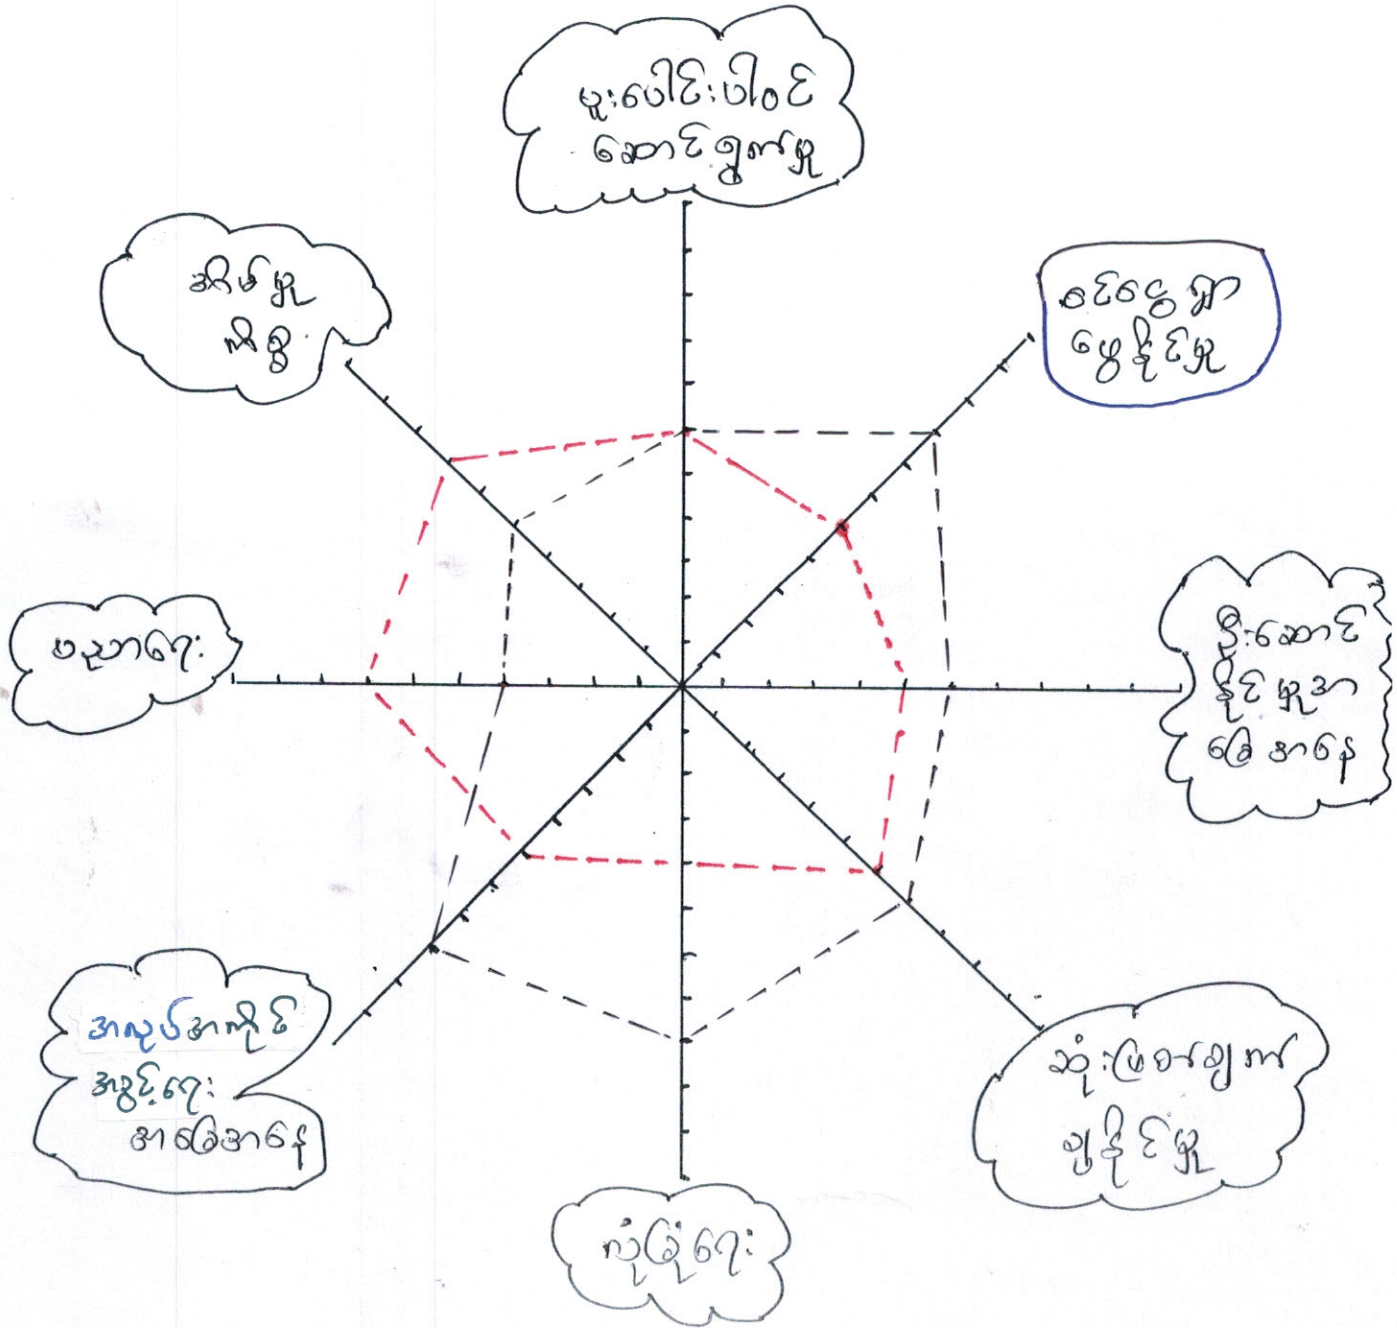 ပူးပေါင်းပါဝင်
ဆောင်ရွက်မှု
ငွေရှာ
ဖွေနိုင်မှု
ဦးဆောင်
နိုင်မှုအ
ခြေအနေ
ဆုံးဖြတ်ချက်
ချနိုင်မှု
လုံခြုံရေး
အလုပ်အကိုင်
အခွင့်ရေး
အခြေအနေ
ပညာရေး
အိမ်မှု
ကိစ္စ